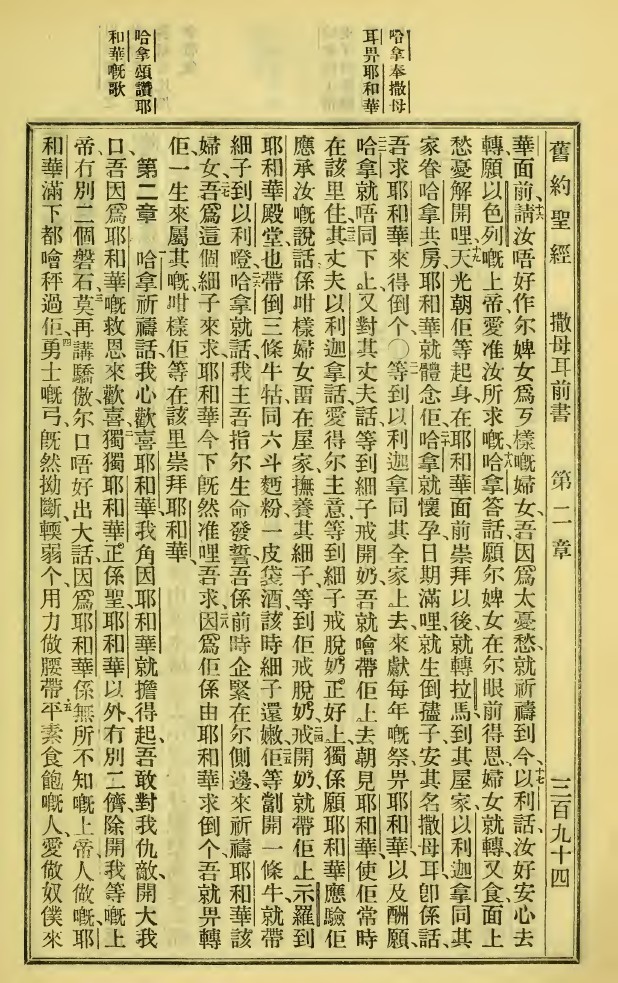 哈拿奉撒母
耳畀耶和華
哈拿頌讚耶
和華嘅歌
舊約聖經 撒母耳前書 第二章 三百九十四
華面前、十六請汝唔好作尔婢女爲歹樣嘅婦女、吾因爲太憂愁、就祈禱到今、十七以利話、汝好安心去
轉、願以色列嘅上帝愛准汝所求嘅、十八哈拿答話、願尔婢女在尔眼前得恩、婦女就轉、又食、面上
愁憂解開哩、十九天光朝佢等起身、在耶和華面前崇拜、以後就轉拉馬到其屋家、以利迦拿同其
家眷哈拿共房、耶和華就體念佢、二十哈拿就懷孕、日期滿哩、就生倒孻子、安其名撒母耳、卽係話、
吾求耶和華來得倒个〇二一等到以利迦拿同其全家上去、來獻每年嘅祭畀耶和華、以及酬願、
二二哈拿就唔同下上、又對其丈夫話、等到細子戒開奶、吾就噲帶佢上去朝見耶和華、使佢常時
在該里住、二三其丈夫以利迦拿話、愛得尔主意、等到細子戒脫奶正好上、獨係願耶和華應驗佢
應承汝嘅說話、係咁樣婦女畱在屋家、撫養其細子、等到佢戒脫奶、二四戒開奶、就帶佢上示羅到
耶和華殿堂、也帶倒三條牛牯、同六斗麪粉、一皮袋酒、該時細子還嫩、二五佢等劏開一條牛、就帶
細子到以利嘅、二六哈拿就話、我主、吾指尔生命發誓、吾係前時企緊在尔側邊、來祈禱耶和華該
婦女、二七吾爲這個細子來求、耶和華今下旣然准哩吾求、二八因爲佢係由耶和華求倒个、吾就畀轉
佢一生來屬其嘅、咁樣佢等在該里崇拜耶和華、
第二章 一哈拿祈禱話、我心歡喜耶和華、我角因耶和華就擔得起、吾敢對我仇敵開大我
口、吾因爲耶和華嘅救恩來歡喜、二獨獨耶和華正係聖、耶和華以外冇別二儕、除開我等嘅上
帝、冇別二個磐石、三莫再講驕傲、尔口唔好出大話、因爲耶和華係無所不知嘅上帝、人做嘅耶
和華滿下都噲秤過佢、四勇士嘅弓、旣然拗斷、輭弱个、用力做腰帶、五平素食飽嘅人、愛做奴僕來